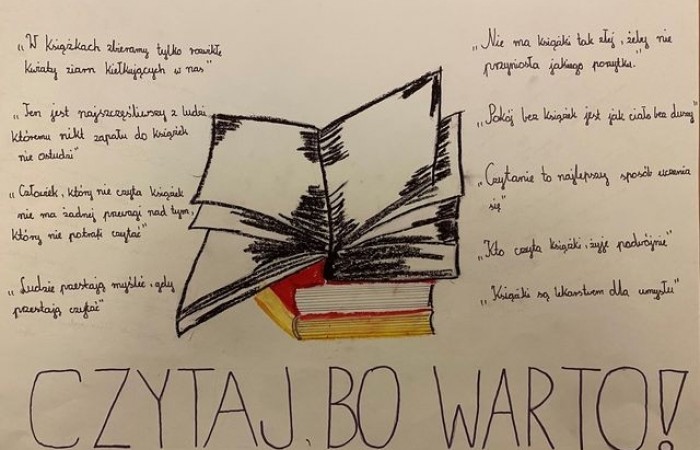 „W książkach zbieramy tylko rozwikłe
kwiaty ziarn kiełkujących w nas"
„Ten jest najszczęśliwszy z ludzi
któremu nikt zapału do książek
nie ostudzi"
„Człowiek, który nie czyta książek
nie ma żadnej przewagi nad tym,
który nie potrafi czytać"
„Ludzie przestają myśleć, gdy
przestają czytać"
„Nie ma książki tak złej, żeby nie
przyniosła jakiego pożytku."
„Pokój bez książek jest jak ciało bez duszy"
„Czytanie to najlepszy sposób uczenia
się"
„Kto czyta książki, żyje podwójnie"
„Książki są lekarstwem dla umysłu"
CZYTAJ, BO WARTO!